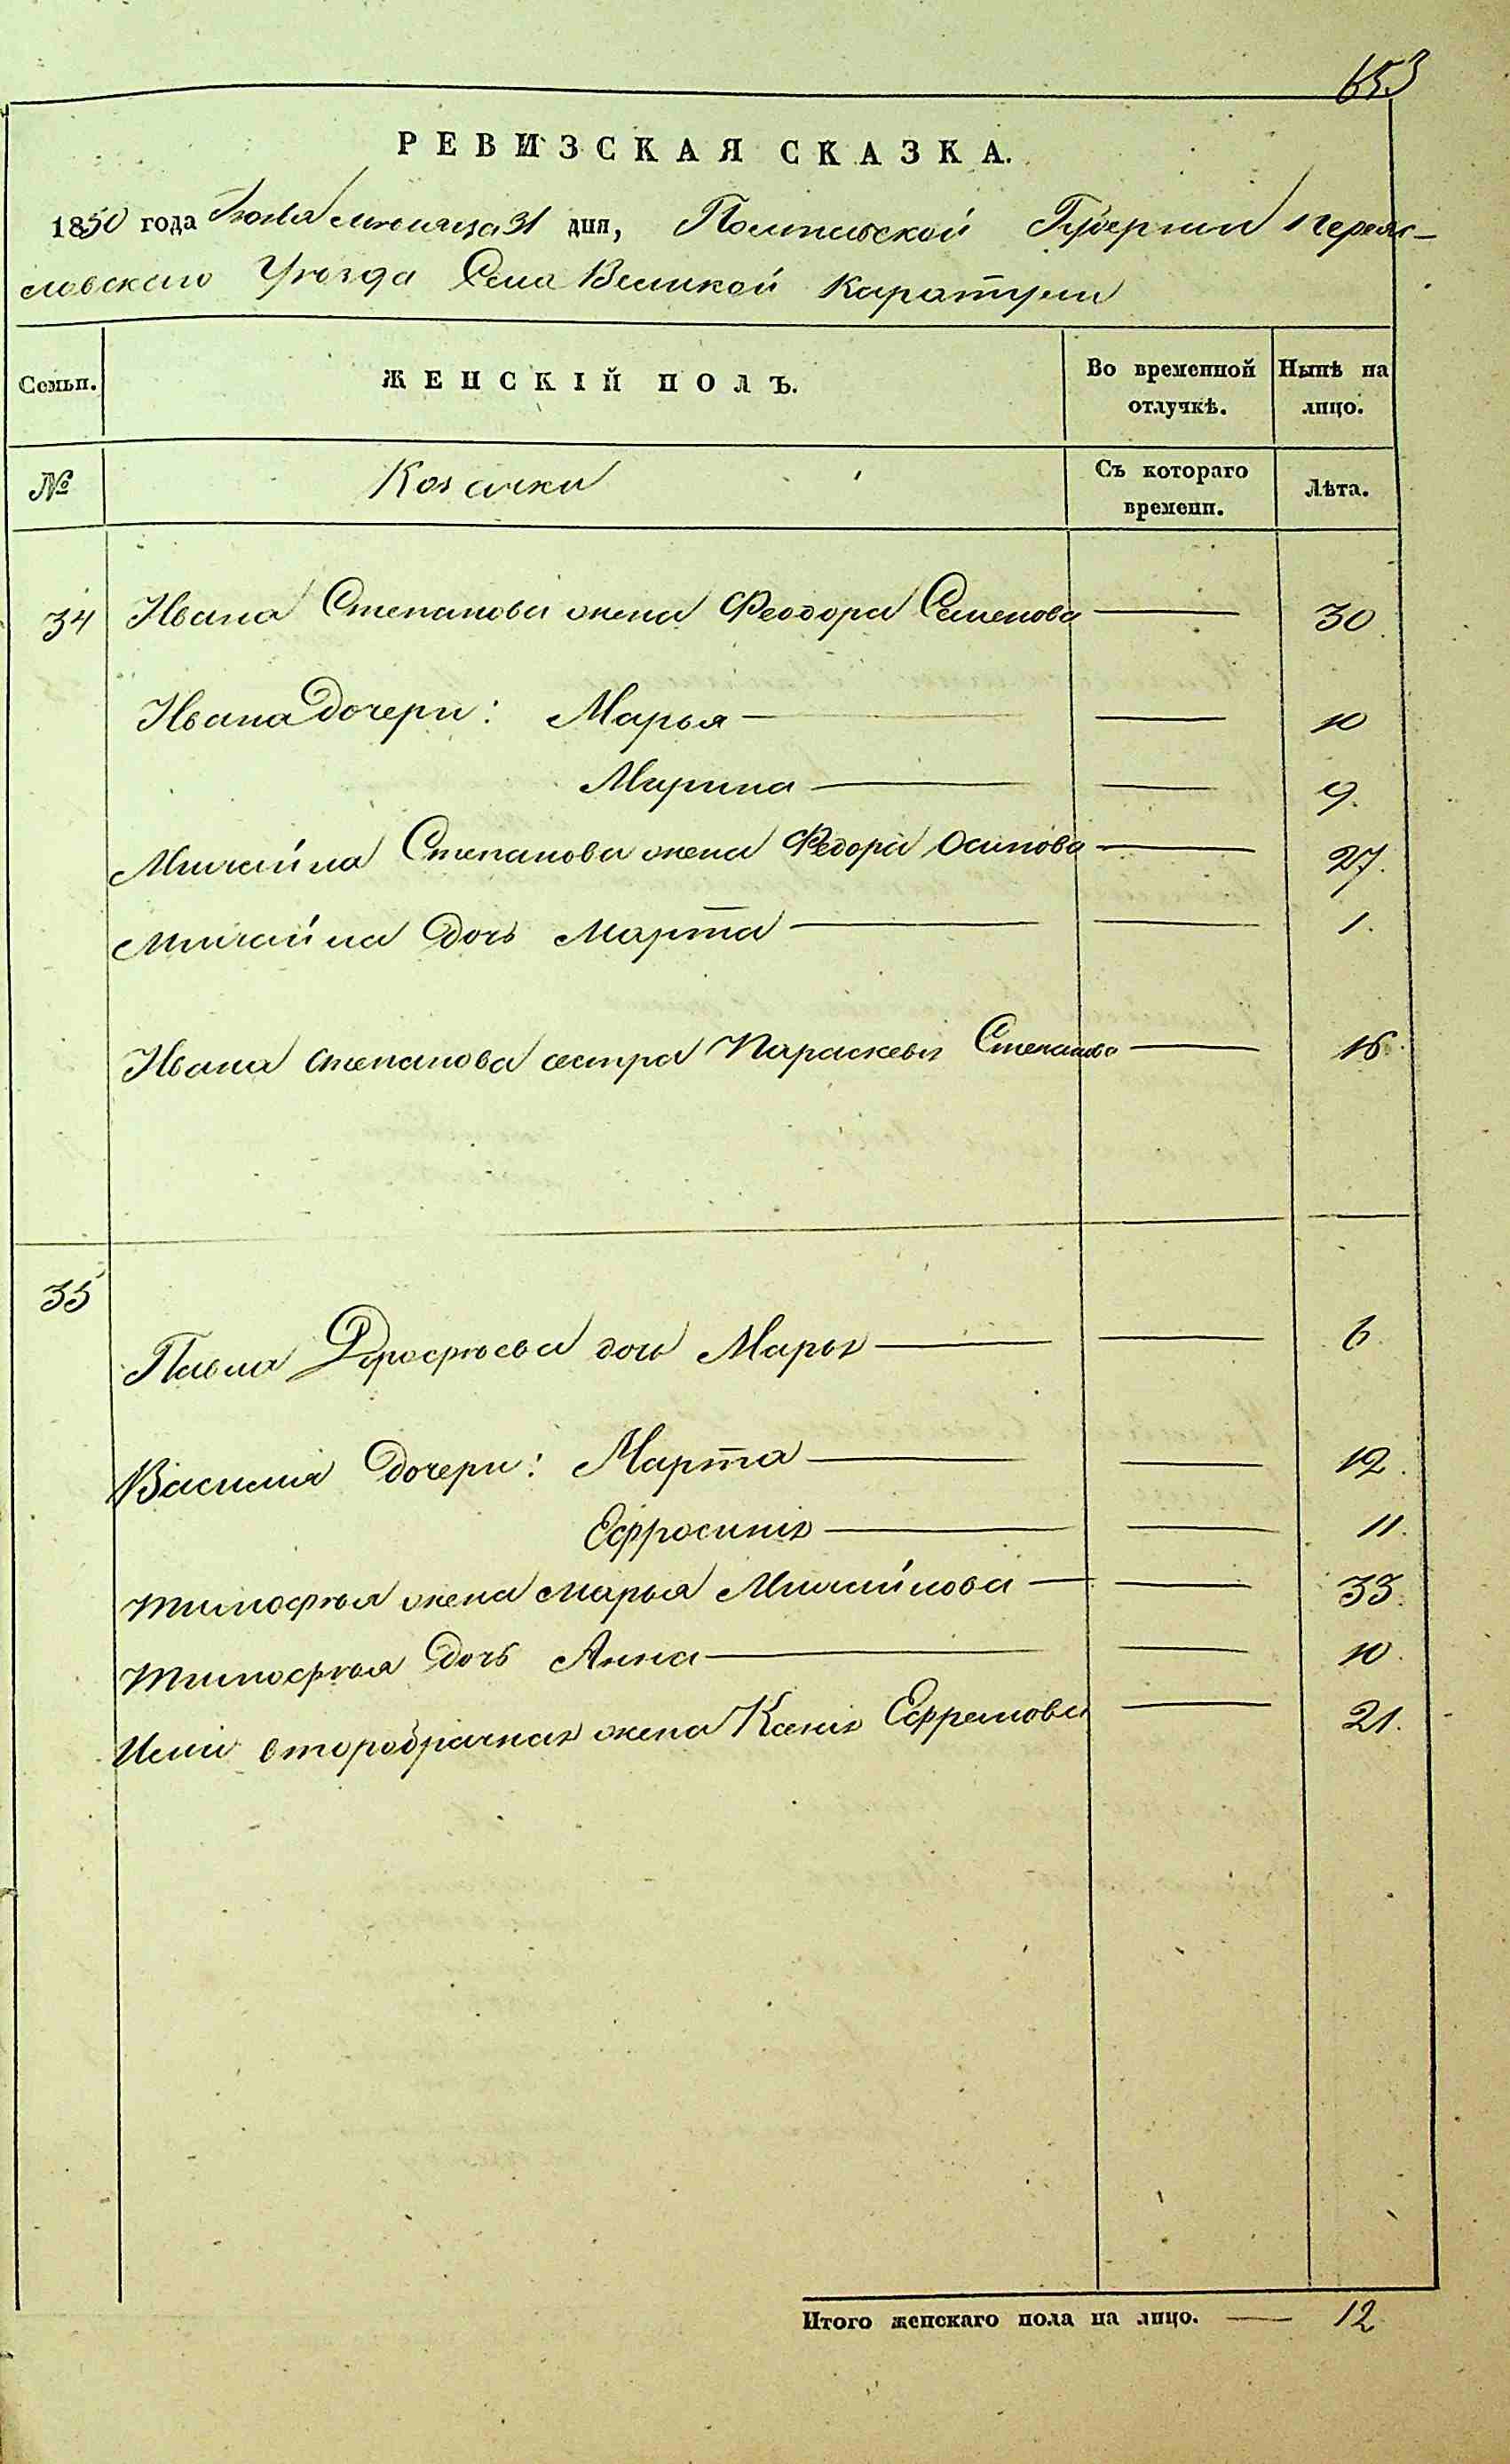 653
РЕВИЗСКАЯ СКАЗКА.
1850 года Июля месяца 31 дня, Полтавской Губернии Переяс-
ловскаго Уѣзда Села Великой Каратули
Семьи. ЖЕНСКІЙ ПОЛЪ. Во временной отлучкѣ. Нынѣ на лицо.
№ Козачки Съ котораго времени. Лѣта.
34 Ивана Степанова жена Феодора Семенова — 30
Ивана Дочери: Марья — — 10
Марина — — 9.
Михайла Степанова жена Федора Осипова — 27.
Михайла Дочь Марта — — 1.
Ивана Степанова сестра Параскевія Степанова — 16.
35
Павла Дорофѣева дочь Марія — — 6.
Василія Дочери: Марта — — 12.
Ефросинія — — 11.
Тимофѣя жена Марья Михайлова — — 33.
Тимофѣя Дочь Анна — — 10.
второбрачная жена Ксенія Ефремова — 21.
Итого женскаго пола на лицо. — 12